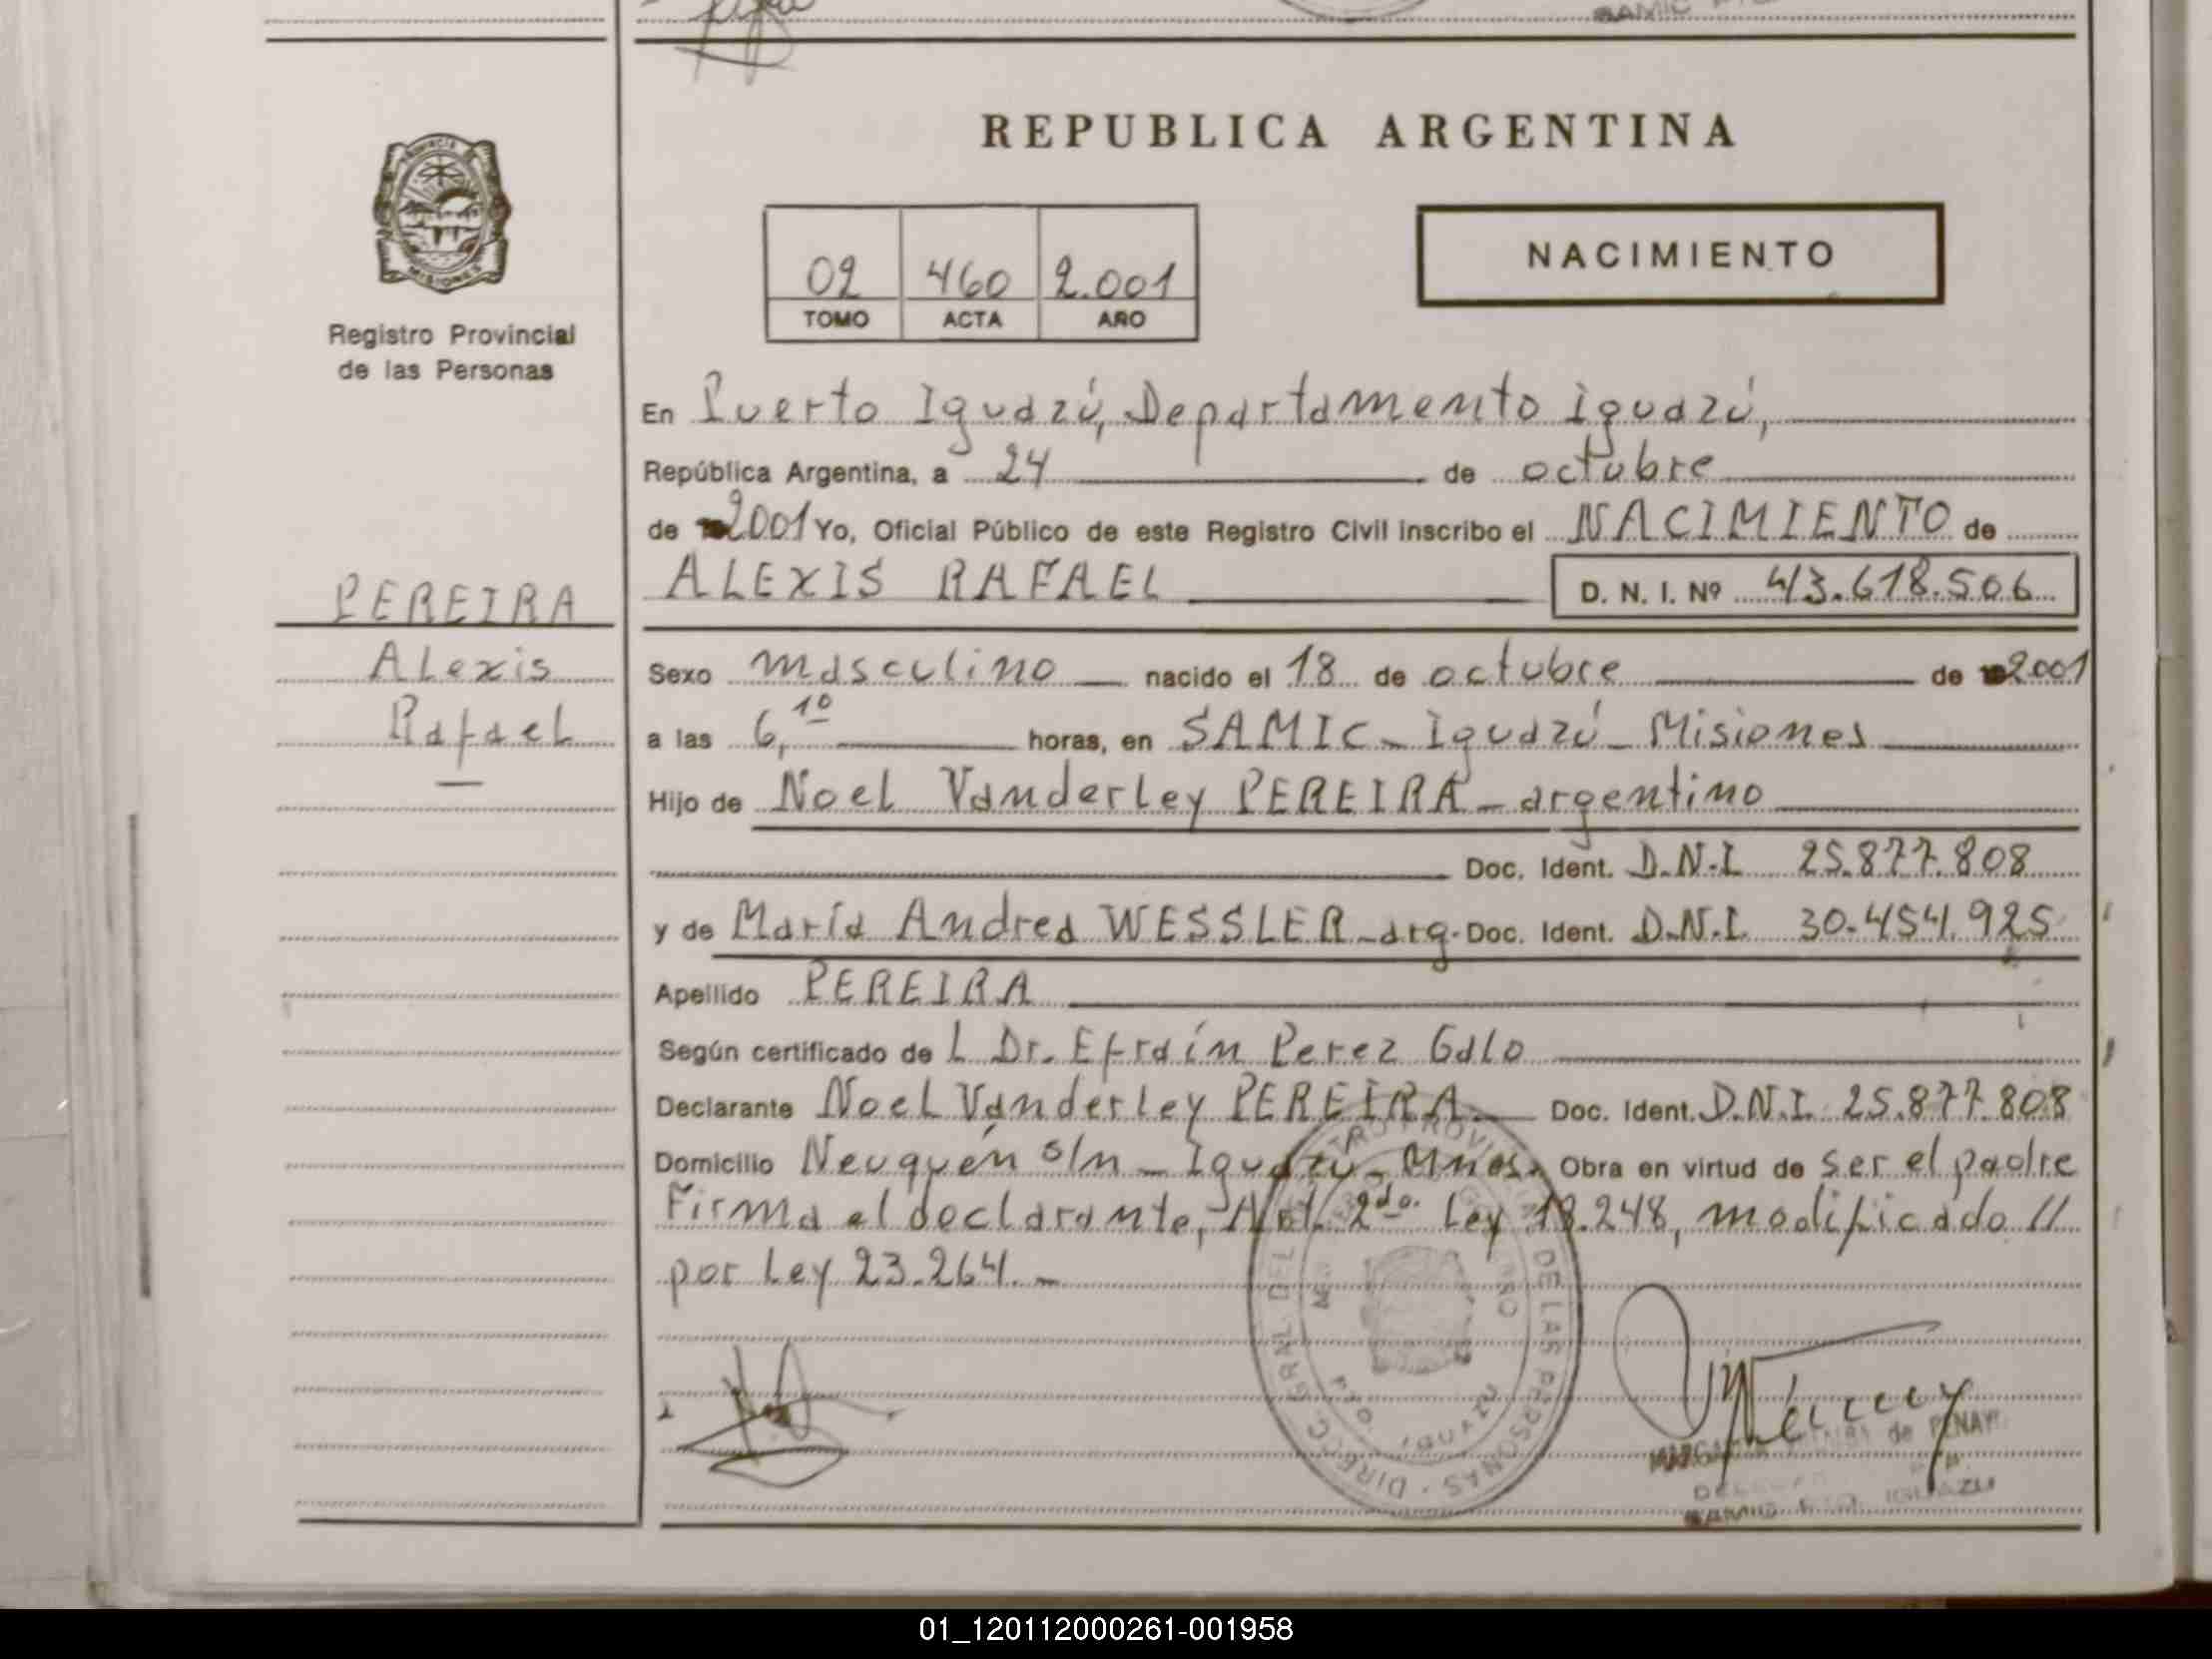 SAMIC
REPUBLICA ARGENTINA
PROVINCIA
MISIONES
Registro Provincial
de las Personas
02 460 2.001
TOMO ACTA AÑO
NACIMIENTO
En Puerto Iguazú, Departamento Iguazú,
República Argentina, a 24 de octubre
de 2001 Yo, Oficial Público de este Registro Civil inscribo el NACIMIENTO de
ALEXIS RAFAEL D. N. I. Nº 43.618.506
PEREIRA
Alexis
Rafael
Sexo masculino nacido el 18 de octubre de 2001
a las 6,10 horas, en SAMIC - Iguazú - Misiones
Hijo de Noel Vanderley PEREIRA - argentino
Doc. Ident. D.N.I. 25.877.808
y de María Andrea WESSLER - arg. Doc. Ident. D.N.I. 30.454.925
Apellido PEREIRA
Según certificado de L Dr. Efraín Perez Galo
Declarante Noel Vanderley PEREIRA Doc. Ident. D.N.I. 25.877.808
Domicilio Neuquén s/n - Iguazú - Mnes. Obra en virtud de ser el padre
Firma el declarante, Art. 2do. Ley 18.248, modificado //
por Ley 23.264. -
DIREC. GRAL. DEL REGISTRO PROVINCIAL DE LAS PERSONAS
PTO. IGUAZU
de PENAY
IGUAZU
01_120112000261-001958